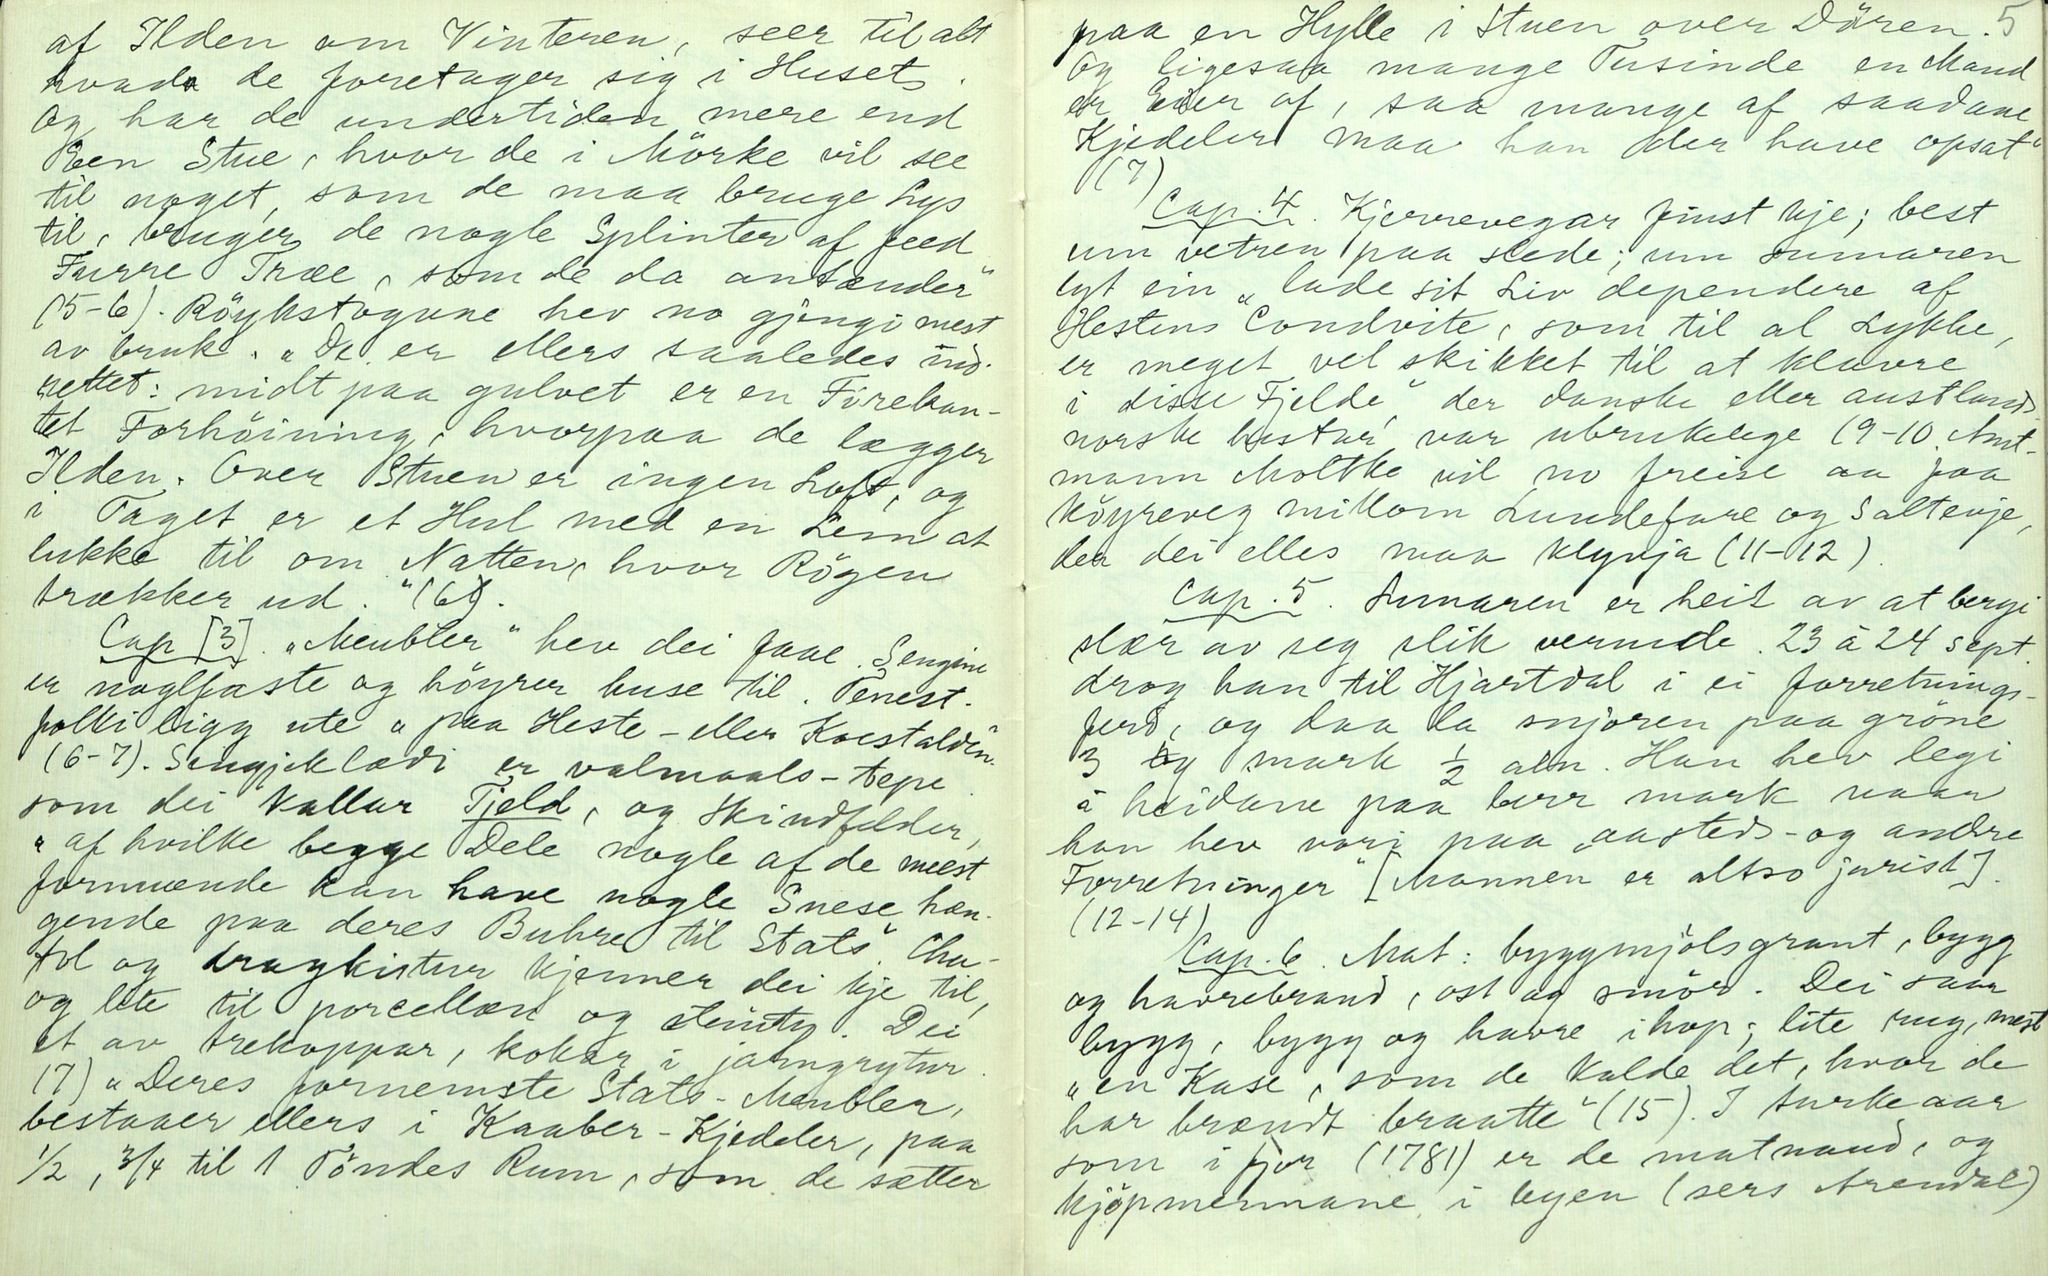 af Ilden om Vinteren, seer til alt
hvad de foretager sig i Huset.
Og har de undertiden mere end
Een Stue, hvor de i Mörke vil see
til noget, som de maa bruge Lys
til, bruger de nogle Splinter af feed
Furre Træe, som de da antænder"
(5-6). Röykstogune hev no gjengi mest
av bruk. "De er ellers saaledes ind-
rettet: midt paa gulvet er en Firekan-
tet Forhöining, hvorpaa de lægger
Ilden. Over Stuen er ingen Loft, og
i Taget er et Hul med en Lem at
lukke til om Natten, hvor Rögen
trækker ud." (6).
Cap [3]. "Meubler" hev dei faae. Sengine
er naglfaste og höyrer huse til. Tenest-
folki ligg ute "paa Heste- eller Koestalden"
(6-7). Sengjeklædi er valmaals-tepe
som dei kallar Tjeld, og Skindfelder,
"af hvilke begge Dele nogle af de meest
formuende kan have nogle Snese hæn-
gende paa deres Buhre til Stats". Cha-
tol og dragkistur kjenner dei kje til,
og lite til porcellæn og steinty. Dei
et av trekoppar, kokar i jarngrytur.
(7) "Deres fornemste Stats-Meubler,
bestaaer ellers i Kaaber-Kjedeler, paa
1/2, 3/4 til 1 Töndes Rum, som de sætter
paa en Hylle i Stuen over Dören. 5
Og ligesaa mange Tusinde en Mand
er Eier af, saa mange af saadane
Kjedeler maa han der have opsat"
(7)
Cap. 4. Kjerrevegar finst kje; best
um vetren paa slede; um sumaren
lyt ein "lade sit Liv dependere af
Hestens Conduite, som til al Lykke,
er meget vel skikket til at klavre
i disse Fjelde", der danske eller austlands-
norske hestar var ubrukelege (9-10. Amt-
mann Moltke vil no freise aa faa
köyreveg millom Lundefare og Salteuje,
der dei elles maa klyvja (11-12).
Cap. 5. Sumaren er heit av at bergi
slær av seg slik verme. 23 à 24 sept.
drog han til Hjartdal i ei forretnings-
ferd, og daa la snjoren paa gröne
mark 1/2 aln. Han hev legi
i heidane paa berr mark naar
han hev vori paa "aasteds- og andre
Forretninger" [Mannen er altso jurist].
(12-14)
Cap. 6. Mat: byggmjölsgraut, bygg
og havrebraud, ost og smör. Dei saar
bygg, bygg og havre ihop; lite rug, mest
"en Kase, som de kalde det, hvor de
har brændt braatte" (15). I turkeaar
som i fjor (1781) er de matnaud, og
kjöpmennane i byen (sers Arendal)